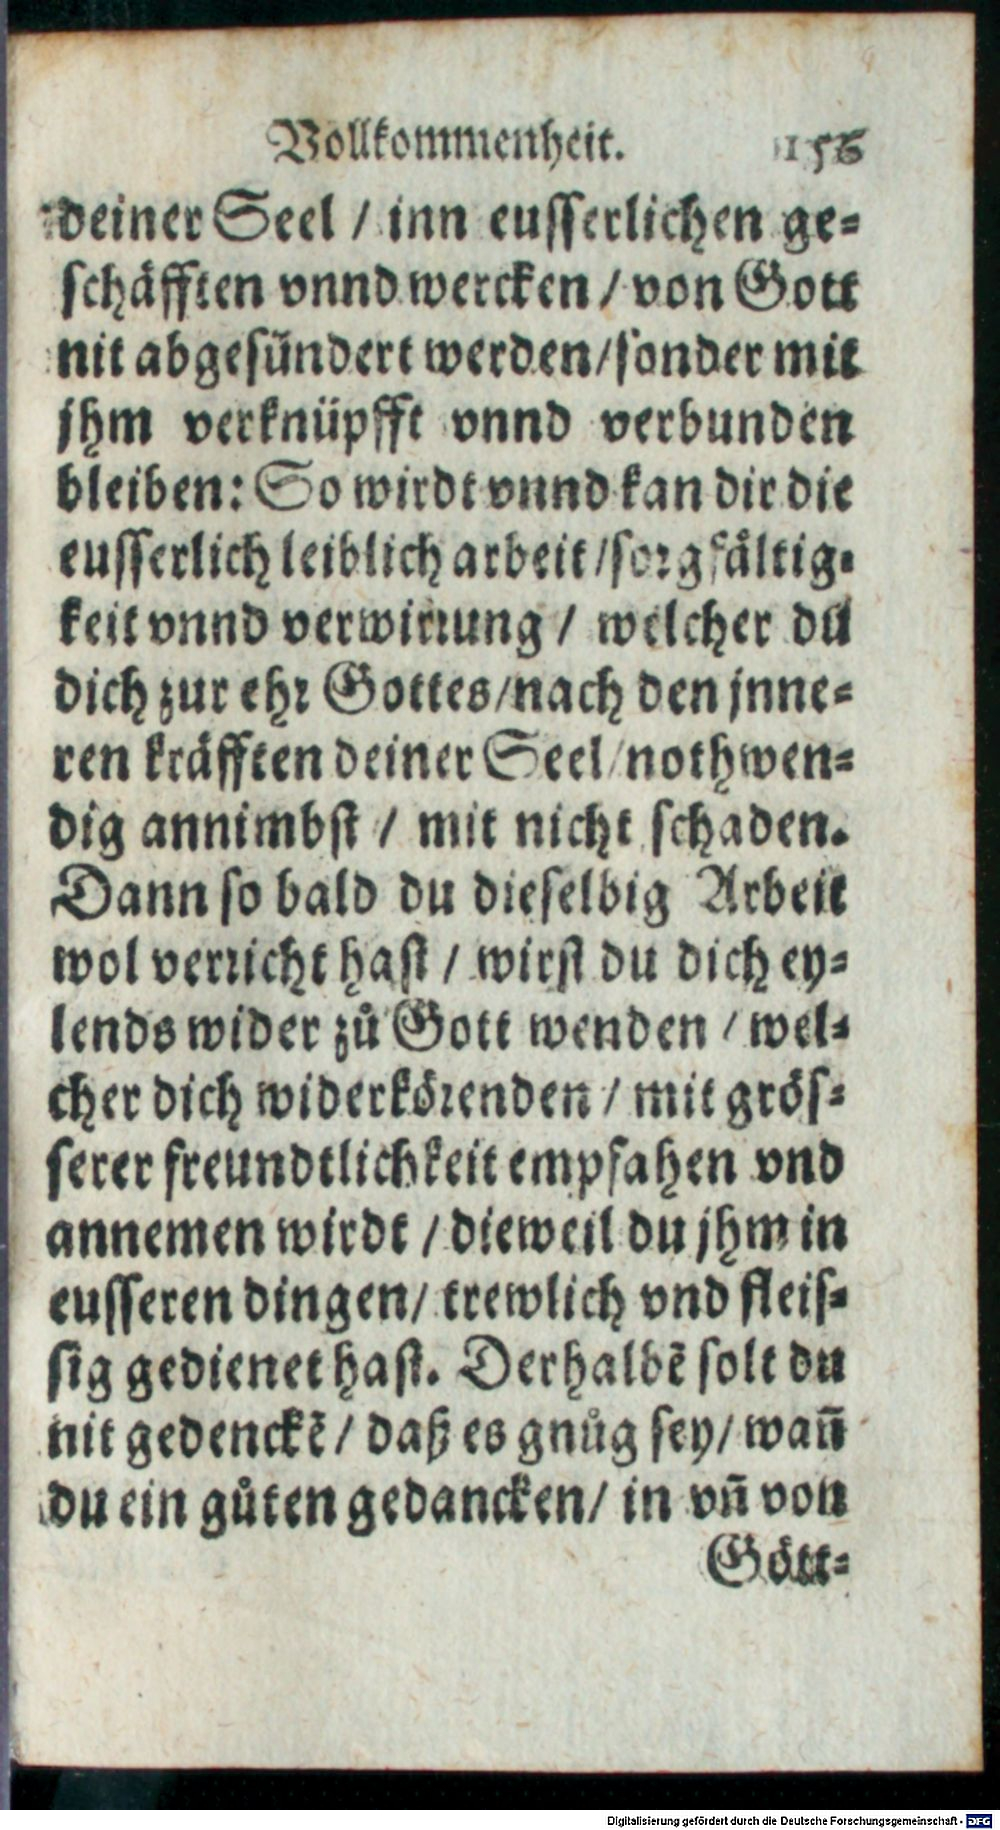 Vollkommenheit. 156
deiner Seel / inn eusserlichen ge-
schäfften vnnd wercken / von Gott
nit abgesündert werden / sonder mit
jhm verknüpfft vnnd verbunden
bleiben: So wirdt vnnd kan dir die
eusserlich leiblich arbeit / sorgfältig-
keit vnnd verwirrung / welcher du
dich zur ehr Gottes / nach den jnne-
ren kräfften deiner Seel / nothwen-
dig annimbst / mit nicht schaden.
Dann so bald du dieselbig Arbeit
wol verricht hast / wirst du dich ey-
lends wider zů Gott wenden / wel-
cher dich widerkörenden / mit grös-
serer freundtlichkeit empfahen vnd
annemen wirdt / dieweil du jhm in
eusseren dingen / trewlich vnd fleis-
sig gedienet hast. Derhalbē solt du
nit gedenckē / daß es gnůg sey / wañ
du ein gůten gedancken / in vñ von
Gött-
Digitalisierung gefördert durch die Deutsche Forschungsgemeinschaft - DFG